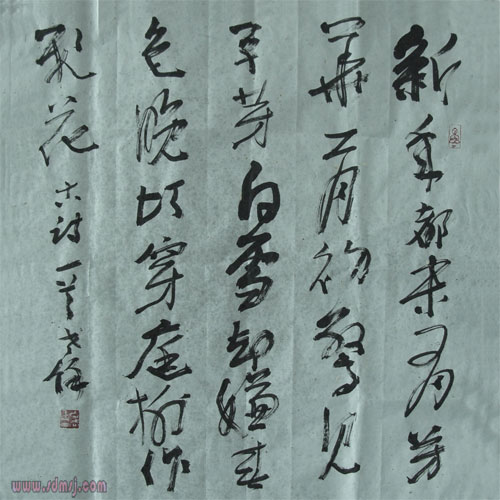 新年都未有芳
華二月初驚見
草芽白雪却嫌春
色晚故穿庭树作
飛花 古诗一首
www.sdmsj.com